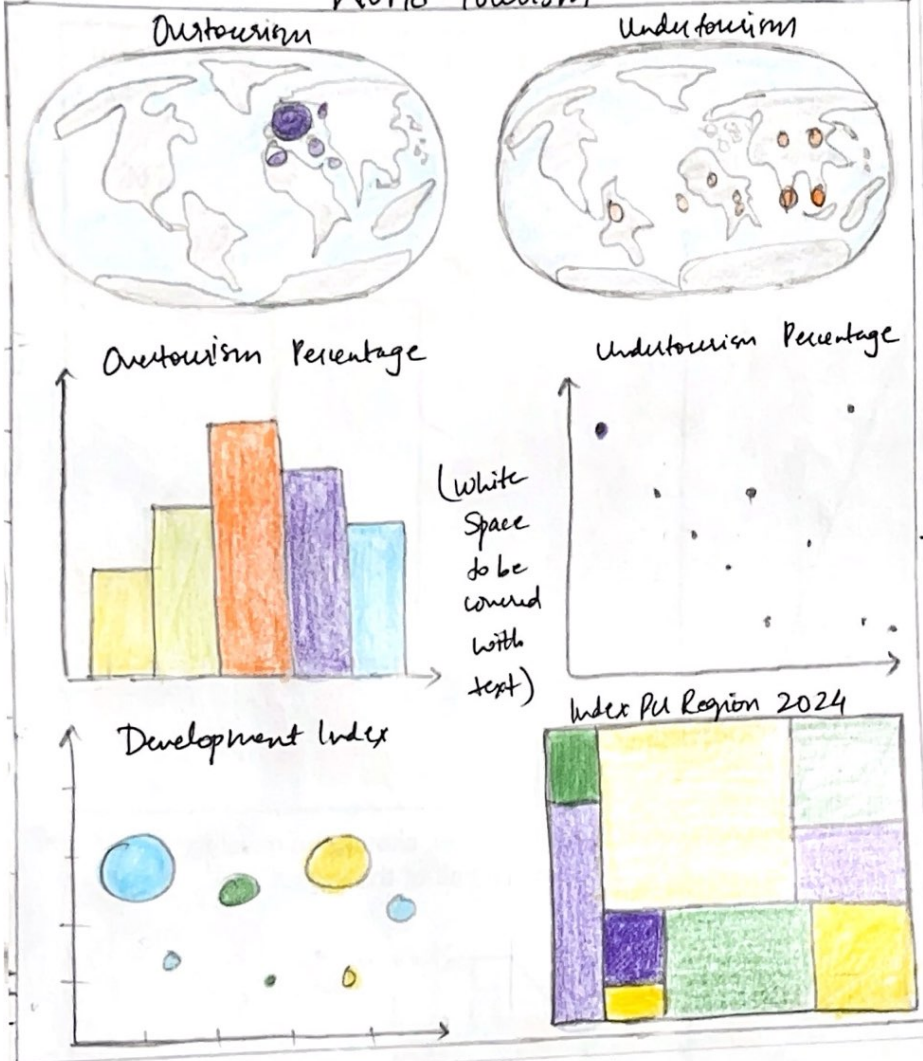 World Tourism
Overtourism
Undertourism
Overtourism Percentage
Undertourism Percentage
(White
Space
to be
covered
with
text)
Development Index
Index Per Region 2024